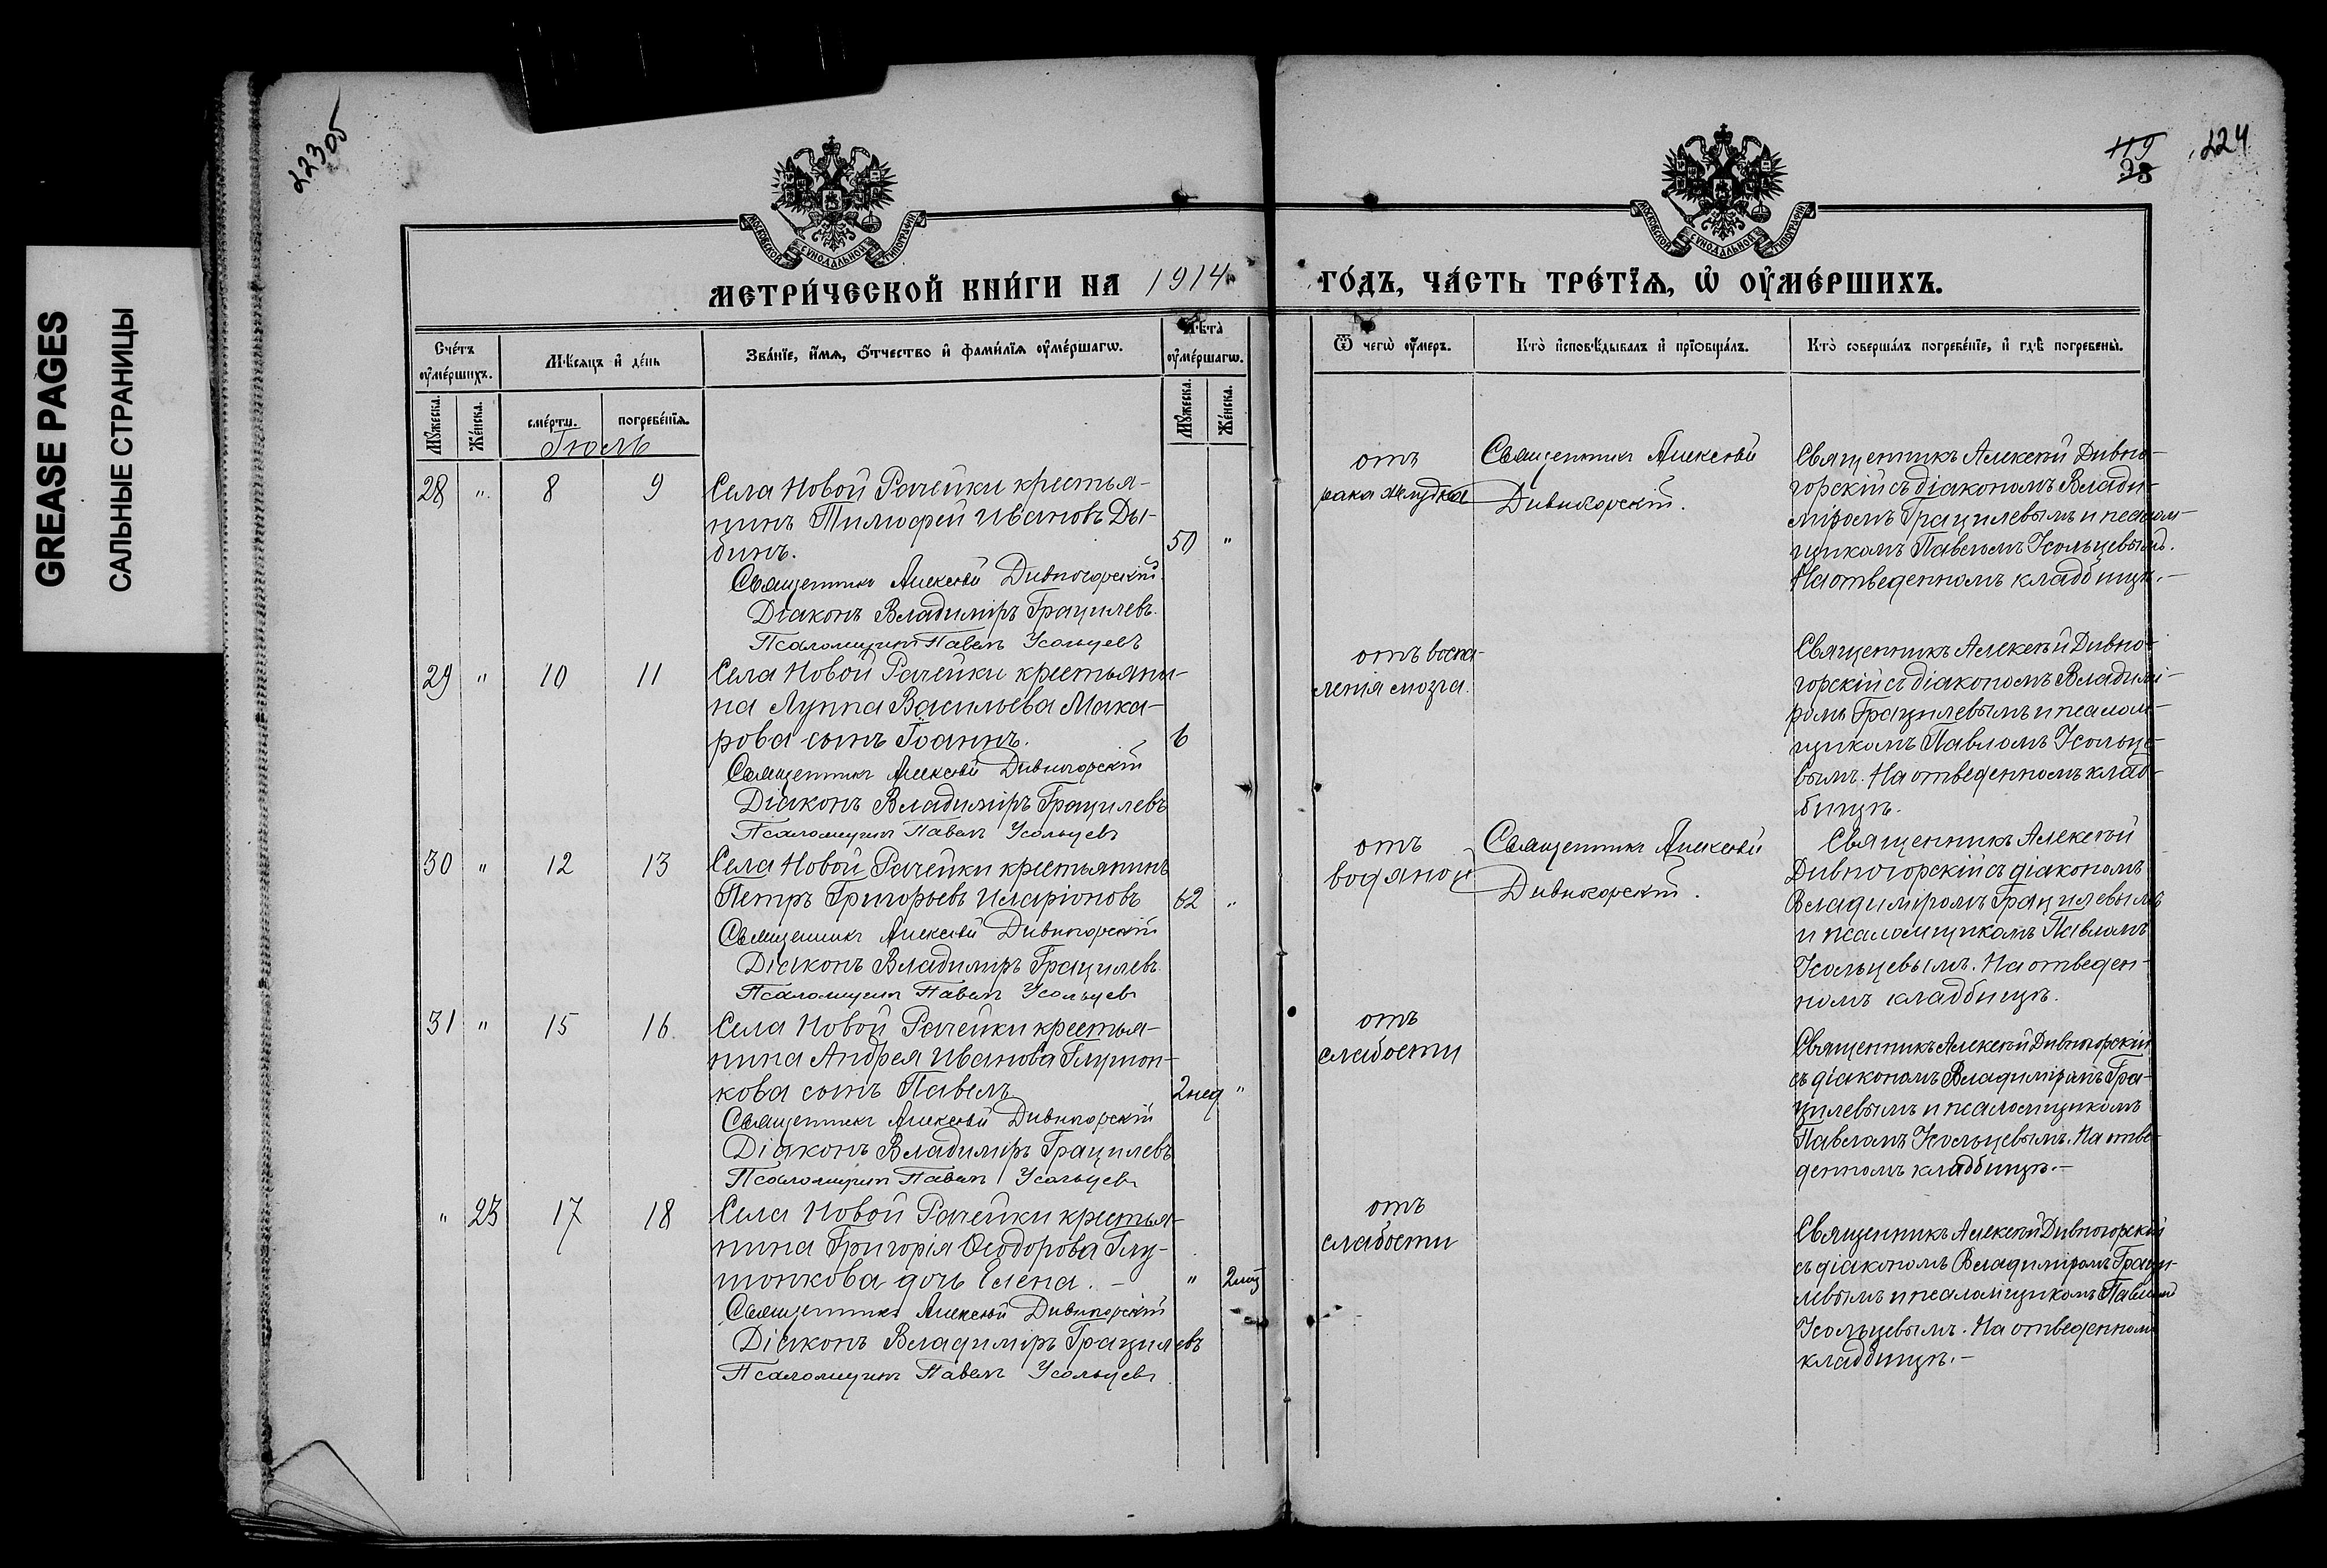 GREASE PAGES
САЛЬНЫЕ СТРАНИЦЫ
22305
119
38
224
МОСКОВСКОЙ СѴНОДАЛЬНОЙ ТИПОГРАФІИ
МОСКОВСКОЙ СѴНОДАЛЬНОЙ ТИПОГРАФІИ
МЕТРИ́ЧЕСКОЙ КНИ́ГИ НА 1914 ГО́ДЪ, ЧА́СТЬ ТРЕ́ТЇѦ, Ѡ҆ ОУ҆МЕ́РШИХЪ.
Сче́тъ оу҆ме́ршихъ.
Мѣ́сяцъ и҆ де́нь
Зва́нїе, и҆́мѧ, ѻ҆́тчество и҆ фами́лїѧ оу҆ме́ршагѡ.
Лѣ́та оу҆ме́ршагѡ.
Ѿ чегѡ̀ оу҆́меръ.
Кто̀ и҆сповѣ́дывалъ и҆ прїѡбща́лъ.
Кто̀ соверша́лъ погребе́нїе, и҆ гдѣ̀ погребены̀.
Мꙋ́жеска.
Же́нска.
сме́рти.
погребе́нїѧ.
Мꙋ́жеска.
Же́нска.
Іюль
28 " 8 9
Села Новой Рачейки крестья-
нинъ Тимофей Ивановъ Ды-
бинъ.
50 "
Священникъ Алексѣй Дивногорскій
Діаконъ Владиміръ Грацилевъ.
Псаломщикъ Павелъ Усольцевъ
отъ
рака желудка
Священникъ Алексѣй
Дивногорскій.
Священникъ Алексѣй Дивно-
горскій съ діакономъ Влади-
міромъ Грацилевымъ и псалом-
щикомъ Павломъ Усольцевымъ.
На отведенномъ кладбищѣ.-
29 " 10 11
Села Новой Рачейки крестьяни-
на Луппа Васильева Мака-
рова сынъ Іоаннъ.
6
Священникъ Алексѣй Дивногорскій
Діаконъ Владиміръ Грацилевъ
Псаломщикъ Павелъ Усольцевъ
отъ воспа-
ленія мозга.
Священникъ Алексѣй Дивно-
горскій съ діакономъ Владимі-
ромъ Грацилевымъ и псалом-
щикомъ Павломъ Усольце-
вымъ. На отведенномъ клад-
бищѣ.
30 " 12 13
Села Новой Рачейки крестьянинъ
Петръ Григорьевъ Иларіоновъ
62 "
Священникъ Алексѣй Дивногорскій
Діаконъ Владиміръ Грацилевъ.
Псаломщикъ Павелъ Усольцевъ
отъ
водяной
Священникъ Алексѣй
Дивногорскій.
Священникъ Алексѣй
Дивногорскій съ діакономъ
Владиміромъ Грацилевымъ
и псаломщикомъ Павломъ
Усольцевымъ. На отведен-
номъ кладбищѣ.
31 " 15 16.
Села Новой Рачейки крестья-
нина Андрея Иванова Глушон-
кова сынъ Павелъ
2нед "
Священникъ Алексѣй Дивногорскій
Діаконъ Владиміръ Грацилевъ
Псаломщикъ Павелъ Усольцевъ
отъ
слабости
Священникъ Алексѣй Дивногорскій
съ діакономъ Владиміромъ Гра-
цилевымъ и псаломщикомъ
Павломъ Усольцевымъ. На отве-
денномъ кладбищѣ.-
" 23 17 18
Села Новой Рачейки крестья-
нина Григорія Ѳеодорова Глу-
шонкова дочь Елена. -
"
Священникъ Алексѣй Дивногорскій
Діаконъ Владиміръ Грацилевъ
Псаломщикъ Павелъ Усольцевъ
отъ
слабости
Священникъ Алексѣй Дивногорскій
съ діакономъ Владиміромъ Граци-
левымъ и псаломщикомъ Павломъ
Усольцевымъ. На отведенномъ
кладбищѣ.-